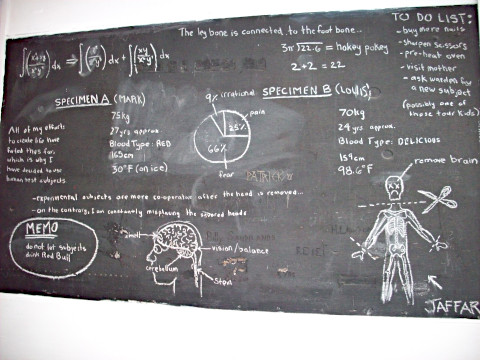 The leg bone is connected to the foot bone...
3π√22.6 = hokey pokey
2+2 = 22
TO DO LIST:
- buy more nails
- sharpen scissors
- pre-heat oven
- visit mother
- ask warden for a new subject
(possibly one of those todd kids)
SPECIMEN A (MARK)
75kg
27yrs approx
Blood Type: RED
165cm
30°F (on ice)
All of my efforts
to create life have
failed thus far.
which is why I
have decided to use
human test subjects
9% irrational
pain
25%
66%
fear
SPECIMEN B (LOUIS)
70kg
24 yrs approx.
Blood Type: DELICIOUS
159cm
98.6°F
remove brain
- experimental subjects are more co-operative after the hand is removed...
- on the contrary, I am constantly misplacing the severed hands
MEMO
do not let subjects
drink Red Bull
Smell
cerebellum
vision/balance
Stem
JAFFAR